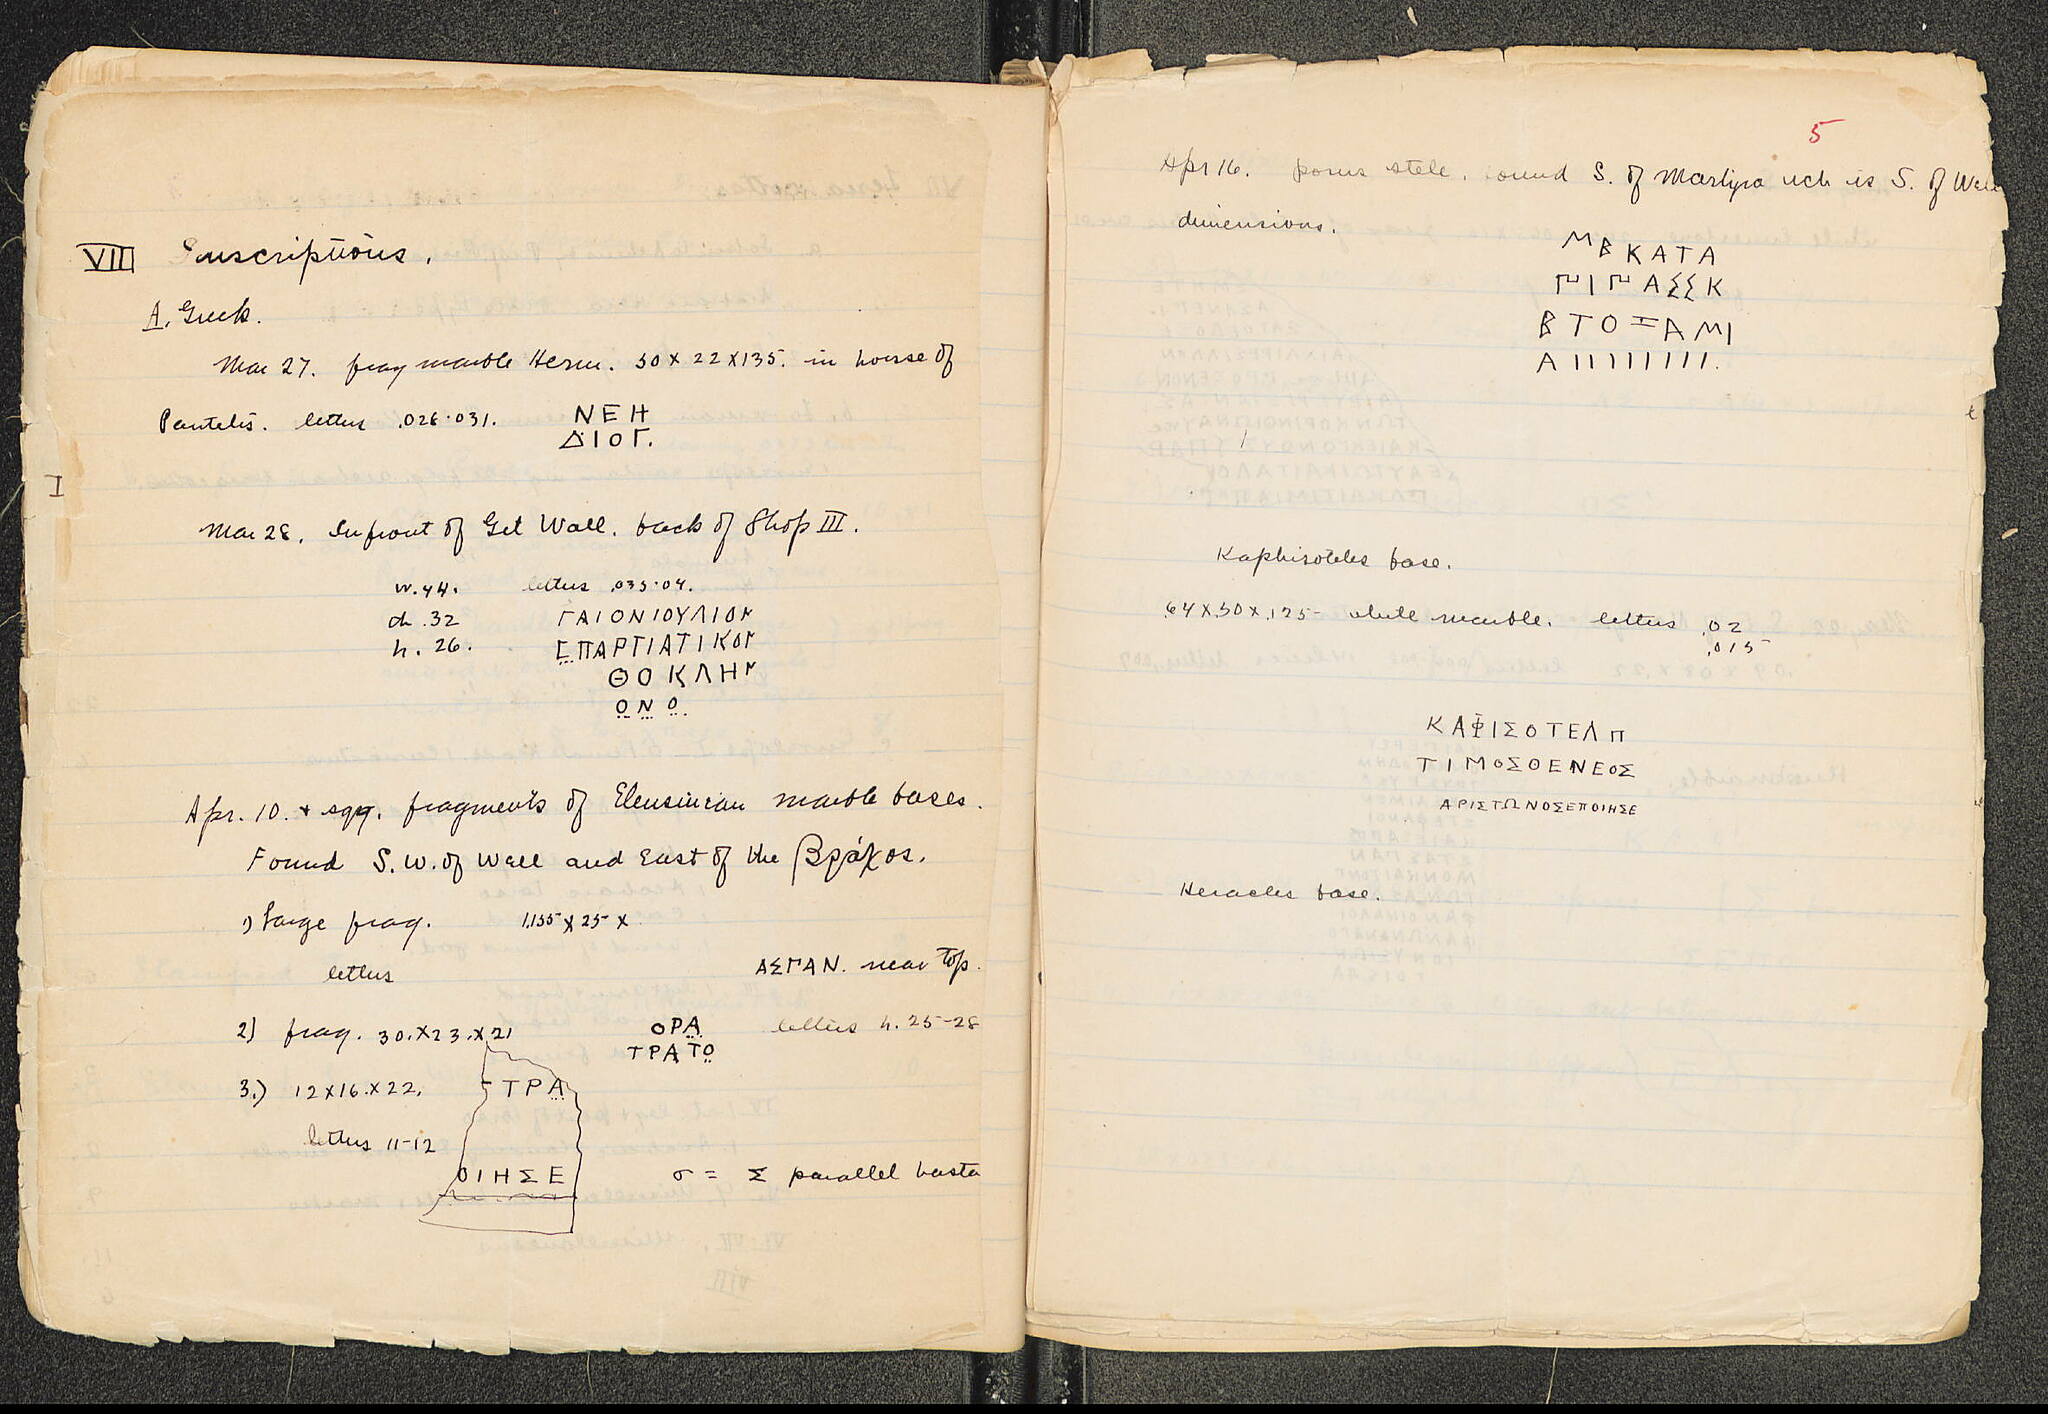 VIII Inscriptions.
A. Greek.
Mar 27. frag marble Herm. 50 X 22 X 135. in house of
Pantelis. letters .028-031. ΝΕΗ
ΔΙΟΓ.
I
Mar 28. In front of Gk Wall. back of Shop III.
w. 44. letters .035-04.
th .32 ΓΑΙΟΝΙΟΥΛΙΟΝ
h. 26. ΣΠΑΡΤΙΑΤΙΚΟΝ
ΘΟΚΛΗΝ
ΟΝΟ.
Apr. 10. + sqq. fragments of Eleusinian marble bases.
Found S.W. of Wall and East of the Βράχος.
1) Large frag. 1.155 X 25 X
letters ΑΣΓΑΝ. near top.
2) frag. 30. X 23. X 21 ΟΡΑ letters h. 25-28
ΤΡΑΤΟ
3.) 12 X 16. X 22. ΤΡΑ
letters 11-12
ΟΙΗΣΕ σ = Σ parallel hasta
5
Apr 16. poros stele. found S. of Martyra wch is S. of Wall
dimensions.
ΜΒΚΑΤΑ
ΠΙΠΑΣΣΚ
ΒΤΟΞΑΜΙ
ΑΙΙΙΙΙΙΙΙ.
Kaphisoteles base.
.64 X .50 X .125 white marble. letters .02
.015
ΚΑΦΙΣΟΤΕΛΠ
ΤΙΜΟΣΘΕΝΕΟΣ
ΑΡΙΣΤΩΝΟΣΕΠΟΙΗΣΕ
Heracles base.